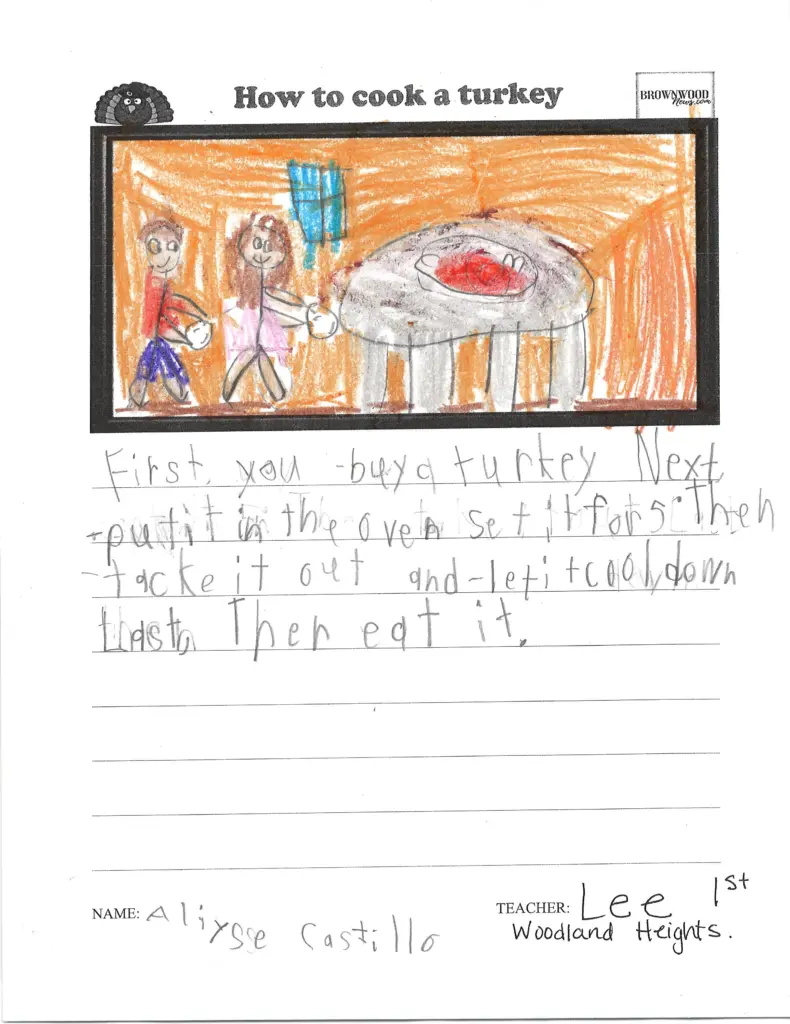 How to cook a turkey
BROWNWOOD
News.com
First, you buy a turkey Next,
put it in the oven set it for 5. Then
tacke it out and let it cool down
Last, Then eat it.
NAME: Aliysse Castillo
TEACHER: Lee 1st
Woodland Heights.